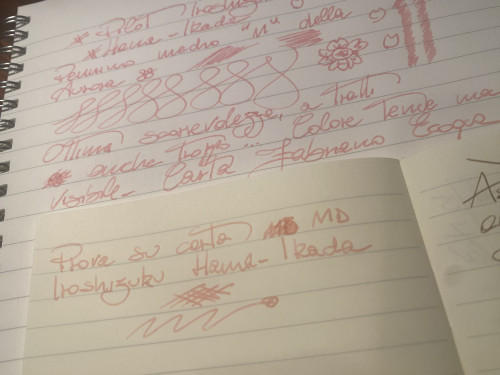 * Pilot Iroshizuku
* Hama-Ikada
Pennino medio "M" della
Aurora 88
Ottima scorrevolezza, a tratti
anche troppo... Colore tende ma
visibile- Carta Fabriano Ecoqua
Prova su carta MD
Iroshizuku Hama-Ikada